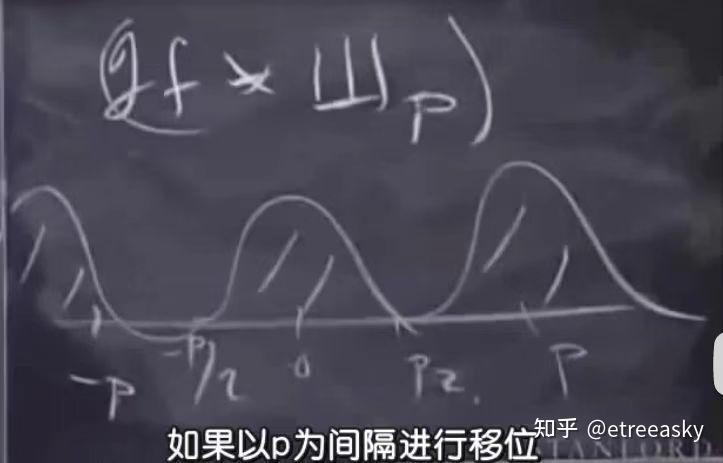 (Ff * Ш p)
-p -p/2 0 p/2 p
如果以p为间隔进行移位
知乎 @etreeasky
STANFORD